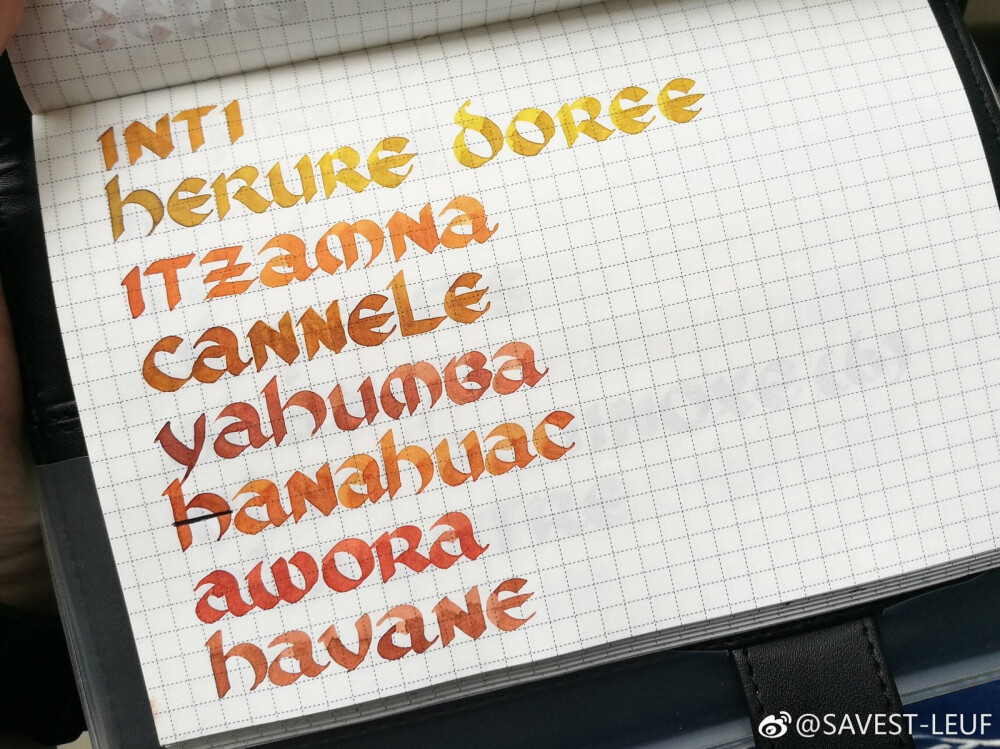 INTI
hERURE DOREE
ITZamNa
CaNNELE
yahumBa
hanahuac
aWORa
havaNE
@SAVEST-LEUF